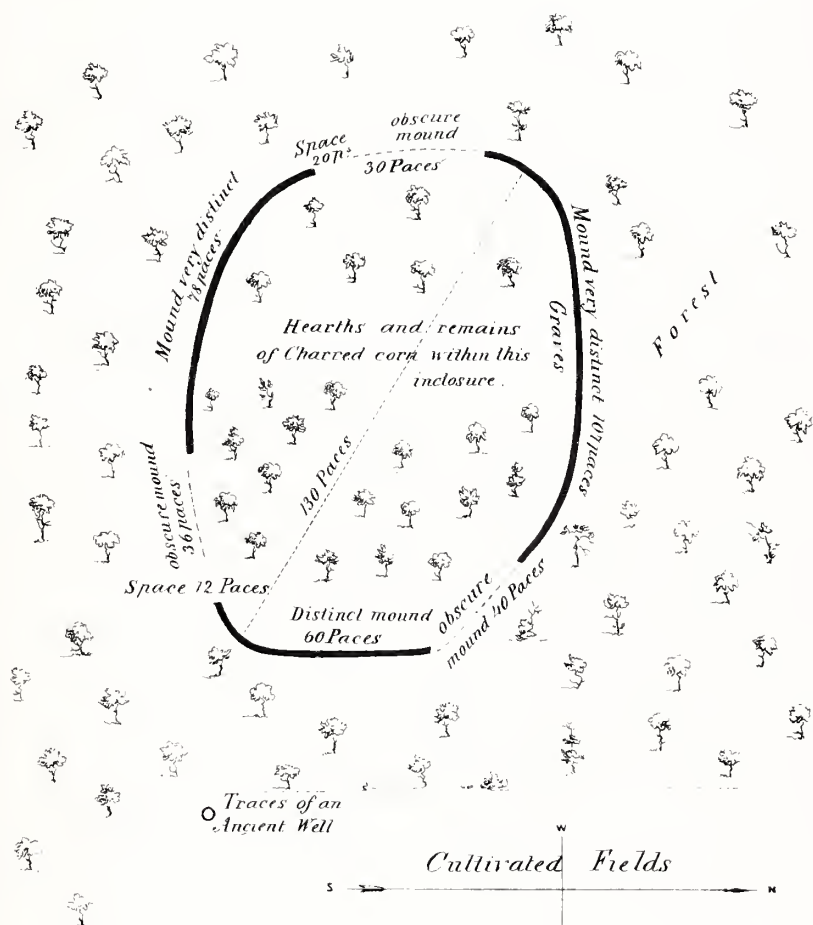 obscure
mound
Space
20 p.s
30 Paces
Mound very distinct
78 paces
Mound very distinct 107 paces
Graves
Forest
Hearths and remains
of Charred corn within this
inclosure.
130 Paces
obscure mound
36 paces
Space 12 Paces
Distinct mound
60 Paces
obscure
mound 40 Paces
Traces of an
Ancient Well
W
Cultivated Fields
S
N